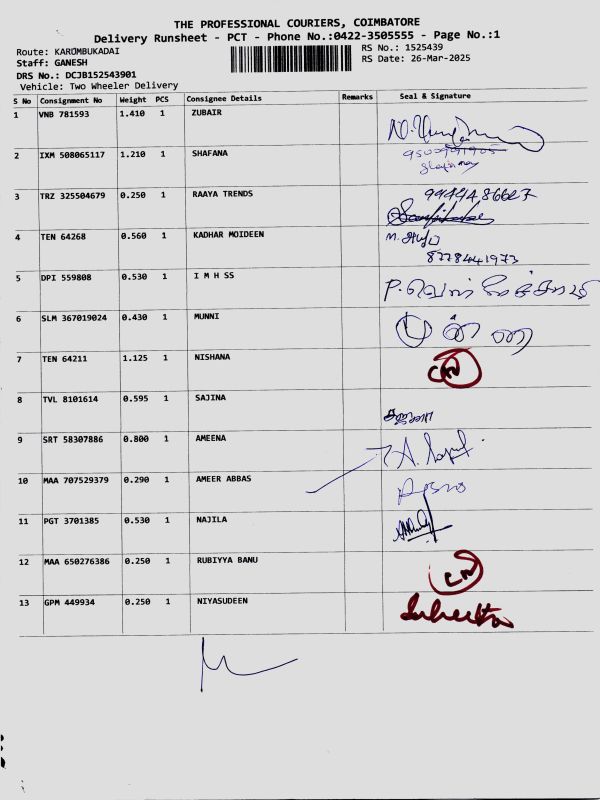 THE PROFESSIONAL COURIERS, COIMBATORE
Delivery Runsheet - PCT - Phone No.:0422-3505555 - Page No.:1
Route: KARUMBUKADAI
RS No.: 1525439
Staff: GANESH
RS Date: 26-Mar-2025
DRS No.: DCJB152543901
Vehicle: Two Wheeler Delivery
S No Consignment No Weight PCS Consignee Details Remarks Seal & Signature
1 VNB 781593 1.410 1 ZUBAIR
2 IXM 508065117 1.210 1 SHAFANA
3 TRZ 325504679 0.250 1 RAAYA TRENDS
4 TEN 64268 0.560 1 KADHAR MOIDEEN
8778441973
5 DPI 559808 0.530 1 I M H SS
6 SLM 367019024 0.430 1 MUNNI
7 TEN 64211 1.125 1 NISHANA
8 TVL 8101614 0.595 1 SAJINA
9 SRT 58307886 0.800 1 AMEENA
10 MAA 707529379 0.290 1 AMEER ABBAS
11 PGT 3701385 0.530 1 NAJILA
12 MAA 650276386 0.250 1 RUBIYYA BANU
13 GPM 449934 0.250 1 NIYASUDEEN